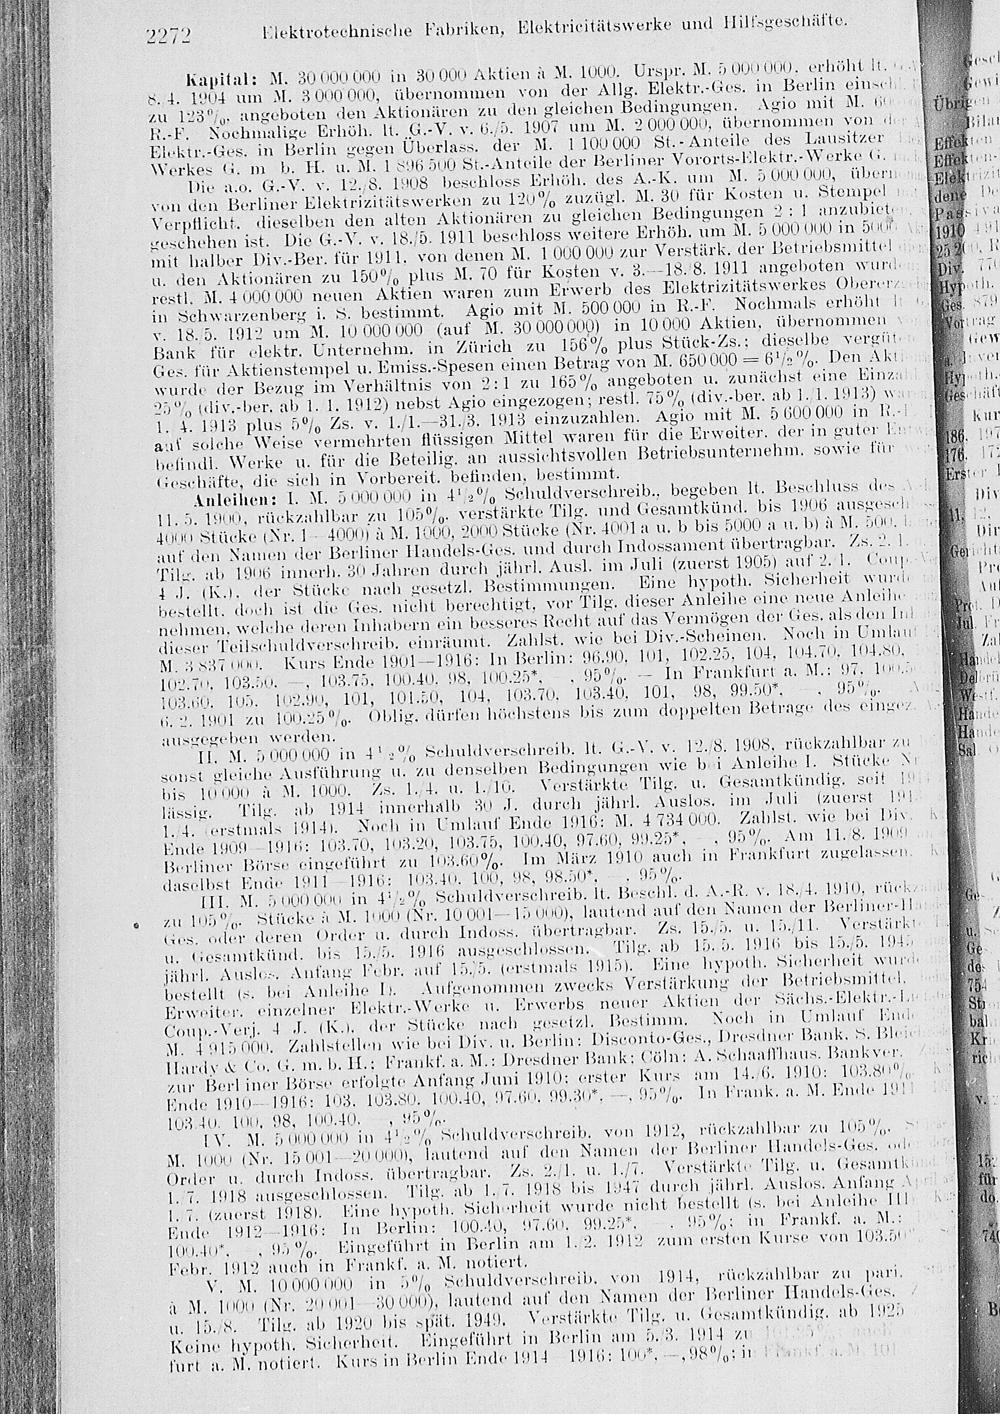 2272 Elektrotechnische Fabriken, Elektricitätswerke und Hilfsgeschäfte.
Kapital: M. 30 000 000 in 30 000 Aktien à M. 1000. Urspr. M. 5 000 000, erhöht lt.
8. 4. 1904 um M. 3 000 000, übernommen von der Allg. Elektr.-Ges. in Berlin einschl.
zu 123%, angeboten den Aktionären zu den gleichen Bedingungen. Agio mit M.
R.-F. Nochmalige Erhöh. lt. G.-V. v. 6./5. 1907 um M. 2 000 000, übernommen von
Elektr.-Ges. in Berlin gegen Überlass. der M. 1 100 000 St.-Anteile des Lausitzer
Werkes G. m b. H. u. M. 1 896 500 St.-Anteile der Berliner Vororts-Elektr.-Werke G.
Die a.o. G.-V. v. 12./8. 1908 beschloss Erhöh. des A.-K. um M. 5 000 000,
von den Berliner Elektrizitätswerken zu 120% zuzügl. M. 30 für Kosten u. Stempel
Verpflicht. dieselben den alten Aktionären zu gleichen Bedingungen 2 : 1
geschehen ist. Die G.-V. v. 18./5. 1911 beschloss weitere Erhöh. um M. 5 000 000 in
mit halber Div.-Ber. für 1911, von denen M. 1 000 000 zur Verstärk. der Betriebsmittel
u. den Aktionären zu 150% plus M. 70 für Kosten v. 3.—18./8. 1911 angeboten
restl. M. 4 000 000 neuen Aktien waren zum Erwerb des Elektrizitätswerkes
in Schwarzenberg i. S. bestimmt. Agio mit M. 500 000 in R.-F. Nochmals erhöht
v. 18./5. 1912 um M. 10 000 000 (auf M. 30 000 000) in 10 000 Aktien, übernommen
Bank für elektr. Unternehm. in Zürich zu 156% plus Stück-Zs.; dieselbe
Ges. für Aktienstempel u. Emiss.-Spesen einen Betrag von M. 650 000 = 6½%. Den
wurde der Bezug im Verhältnis von 2:1 zu 165% angeboten u. zunächst eine
25% (div.-ber. ab 1. 1. 1912) nebst Agio eingezogen; restl. 75% (div.-ber. ab 1. 1. 1913)
1. 4. 1913 plus 5% Zs. v. 1./1.—31./3. 1913 einzuzahlen. Agio mit M. 5 600 000 in
auf solche Weise vermehrten flüssigen Mittel waren für die Erweiter. der in guter
befindl. Werke u. für die Beteilig. an aussichtsvollen Betriebsunternehm. sowie für
Geschäfte, die sich in Vorbereit. befinden, bestimmt.
Anleihen: I. M. 5 000 000 in 4½% Schuldverschreib., begeben lt. Beschluss des
11. 5. 1900, rückzahlbar zu 105%, verstärkte Tilg. und Gesamtkünd. bis 1906
4000 Stücke (Nr. 1—4000) à M. 1000, 2000 Stücke (Nr. 4001 a u. b bis 5000 a u. b) à M. 500,
auf den Namen der Berliner Handels-Ges. und durch Indossament übertragbar. Zs. 2. 1.
Tilg. ab 1906 innerh. 30 Jahren durch jährl. Ausl. im Juli (zuerst 1905) auf 2. 1.
4 J. (K.), der Stücke nach gesetzl. Bestimmungen. Eine hypoth. Sicherheit
bestellt, doch ist die Ges. nicht berechtigt, vor Tilg. dieser Anleihe eine neue Anleihe
nehmen, welche deren Inhabern ein besseres Recht auf das Vermögen der Ges. als den
dieser Teilschuldverschreib. einräumt. Zahlst. wie bei Div.-Scheinen. Noch in Umlauf
M. 3 837 000. Kurs Ende 1901—1916: In Berlin: 96.90, 101, 102.25, 104, 104.70, 104.80,
102.70, 103.50, —, 103.75, 100.40, 98, 100.25*, —, 95%. — In Frankfurt a. M.: 97,
103.60, 105, 102.90, 101, 101.50, 104, 103.70, 103.40, 101, 98, 99.50*, —, 95%.
6. 2. 1901 zu 100.25%. Oblig. dürfen höchstens bis zum doppelten Betrage des
ausgegeben werden.
II. M. 5 000 000 in 4½% Schuldverschreib. lt. G.-V. v. 12./8. 1908, rückzahlbar zu
sonst gleiche Ausführung u. zu denselben Bedingungen wie b i Anleihe I. Stücke
bis 10 000 à M. 1000. Zs. 1./4. u. 1./10. Verstärkte Tilg. u. Gesamtkündig. seit
lässig. Tilg. ab 1914 innerhalb 30 J. durch jährl. Auslos. im Juli (zuerst
1./4. (erstmals 1914). Noch in Umlauf Ende 1916: M. 4 734 000. Zahlst. wie bei Div.
Ende 1909—1916: 103.70, 103.20, 103.75, 100.40, 97.60, 99.25*, —, 95%. Am 11./8. 1909
Berliner Börse eingeführt zu 103.60%. Im März 1910 auch in Frankfurt zugelassen.
daselbst Ende 1911—1916: 103.40, 100, 98, 98.50*, —, 95%.
III. M. 5 000 000 in 4½% Schuldverschreib. lt. Beschl. d. A.-R. v. 18./4. 1910,
zu 105%. Stücke à M. 1000 (Nr. 10 001—15 000), lautend auf den Namen der
Ges. oder deren Order u. durch Indoss. übertragbar. Zs. 15./5. u. 15./11.
u. Gesamtkünd. bis 15./5. 1916 ausgeschlossen. Tilg. ab 15. 5. 1916 bis 15./5. 1945
jährl. Auslos. Anfang Febr. auf 15./5. (erstmals 1915). Eine hypoth. Sicherheit
bestellt (s. bei Anleihe I). Aufgenommen zwecks Verstärkung der Betriebsmittel,
Erweiter. einzelner Elektr.-Werke u. Erwerbs neuer Aktien der Sächs.-Elektr.
Coup.-Verj. 4 J. (K.), der Stücke nach gesetzl. Bestimm. Noch in Umlauf Ende
M. 4 915 000. Zahlstellen wie bei Div. u. Berlin: Disconto-Ges., Dresdner Bank, S.
Hardy & Co. G. m. b. H.; Frankf. a. M.: Dresdner Bank; Cöln: A. Schaaffhaus. Bankver.
zur Berl iner Börse erfolgte Anfang Juni 1910: erster Kurs am 14./6. 1910: 103.80%
Ende 1910—1916: 103, 103.80, 100.40, 97.60, 99.30*, —, 95%. In Frank. a. M. Ende 1911
103.40, 100, 98, 100.40, —, 95%.
IV. M. 5 000 000 in 4½% Schuldverschreib. von 1912, rückzahlbar zu 105%.
M. 1000 (Nr. 15 001—20 000), lautend auf den Namen der Berliner Handels-Ges.
Order u. durch Indoss. übertragbar. Zs. 2./1. u. 1./7. Verstärkte Tilg. u.
1. 7. 1918 ausgeschlossen. Tilg. ab 1. 7. 1918 bis 1947 durch jährl. Auslos. Anfang
1. 7. (zuerst 1918). Eine hypoth. Sicherheit wurde nicht bestellt (s. bei Anleihe
Ende 1912—1916: In Berlin: 100.40, 97.60, 99.25*, —, 95%; in Frankf. a. M.:
100.40*, —, 95%. Eingeführt in Berlin am 1. 2. 1912 zum ersten Kurse von
Febr. 1912 auch in Frankf. a. M. notiert.
V. M. 10 000 000 in 5% Schuldverschreib. von 1914, rückzahlbar zu pari.
à M. 1000 (Nr. 20 001—30 000), lautend auf den Namen der Berliner Handels-Ges.
u. 15./8. Tilg. ab 1920 bis spät. 1949. Verstärkte Tilg. u. Gesamtkündig. ab 1925
Keine hypoth. Sicherheit. Eingeführt in Berlin am 5./3. 1914 zu
furt a. M. notiert. Kurs in Berlin Ende 1914—1916: 100*, —, 98%;